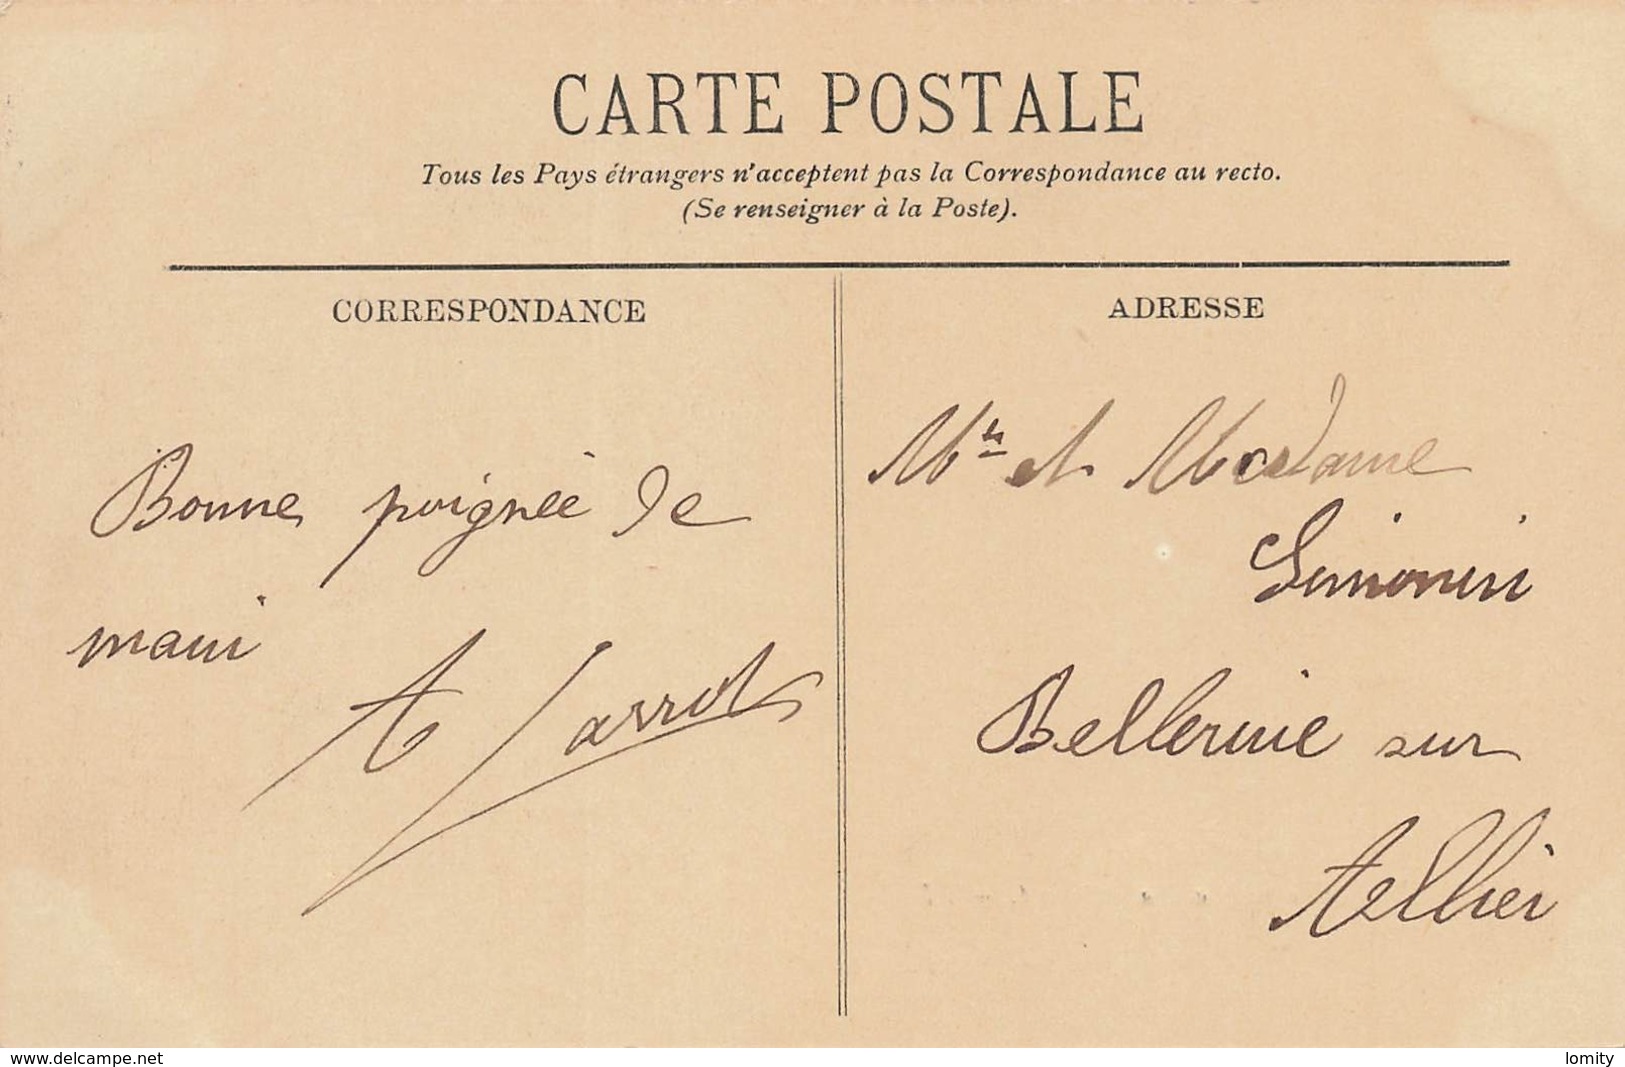 CARTE POSTALE
Tous les Pays étrangers n'acceptent pas la Correspondance au recto.
(Se renseigner à la Poste).
CORRESPONDANCE
Bonne poignée de
main
A Jarrot
ADRESSE
Mr et Madame
Simonin
Bellerive sur
Allier
www.delcampe.net
lomity